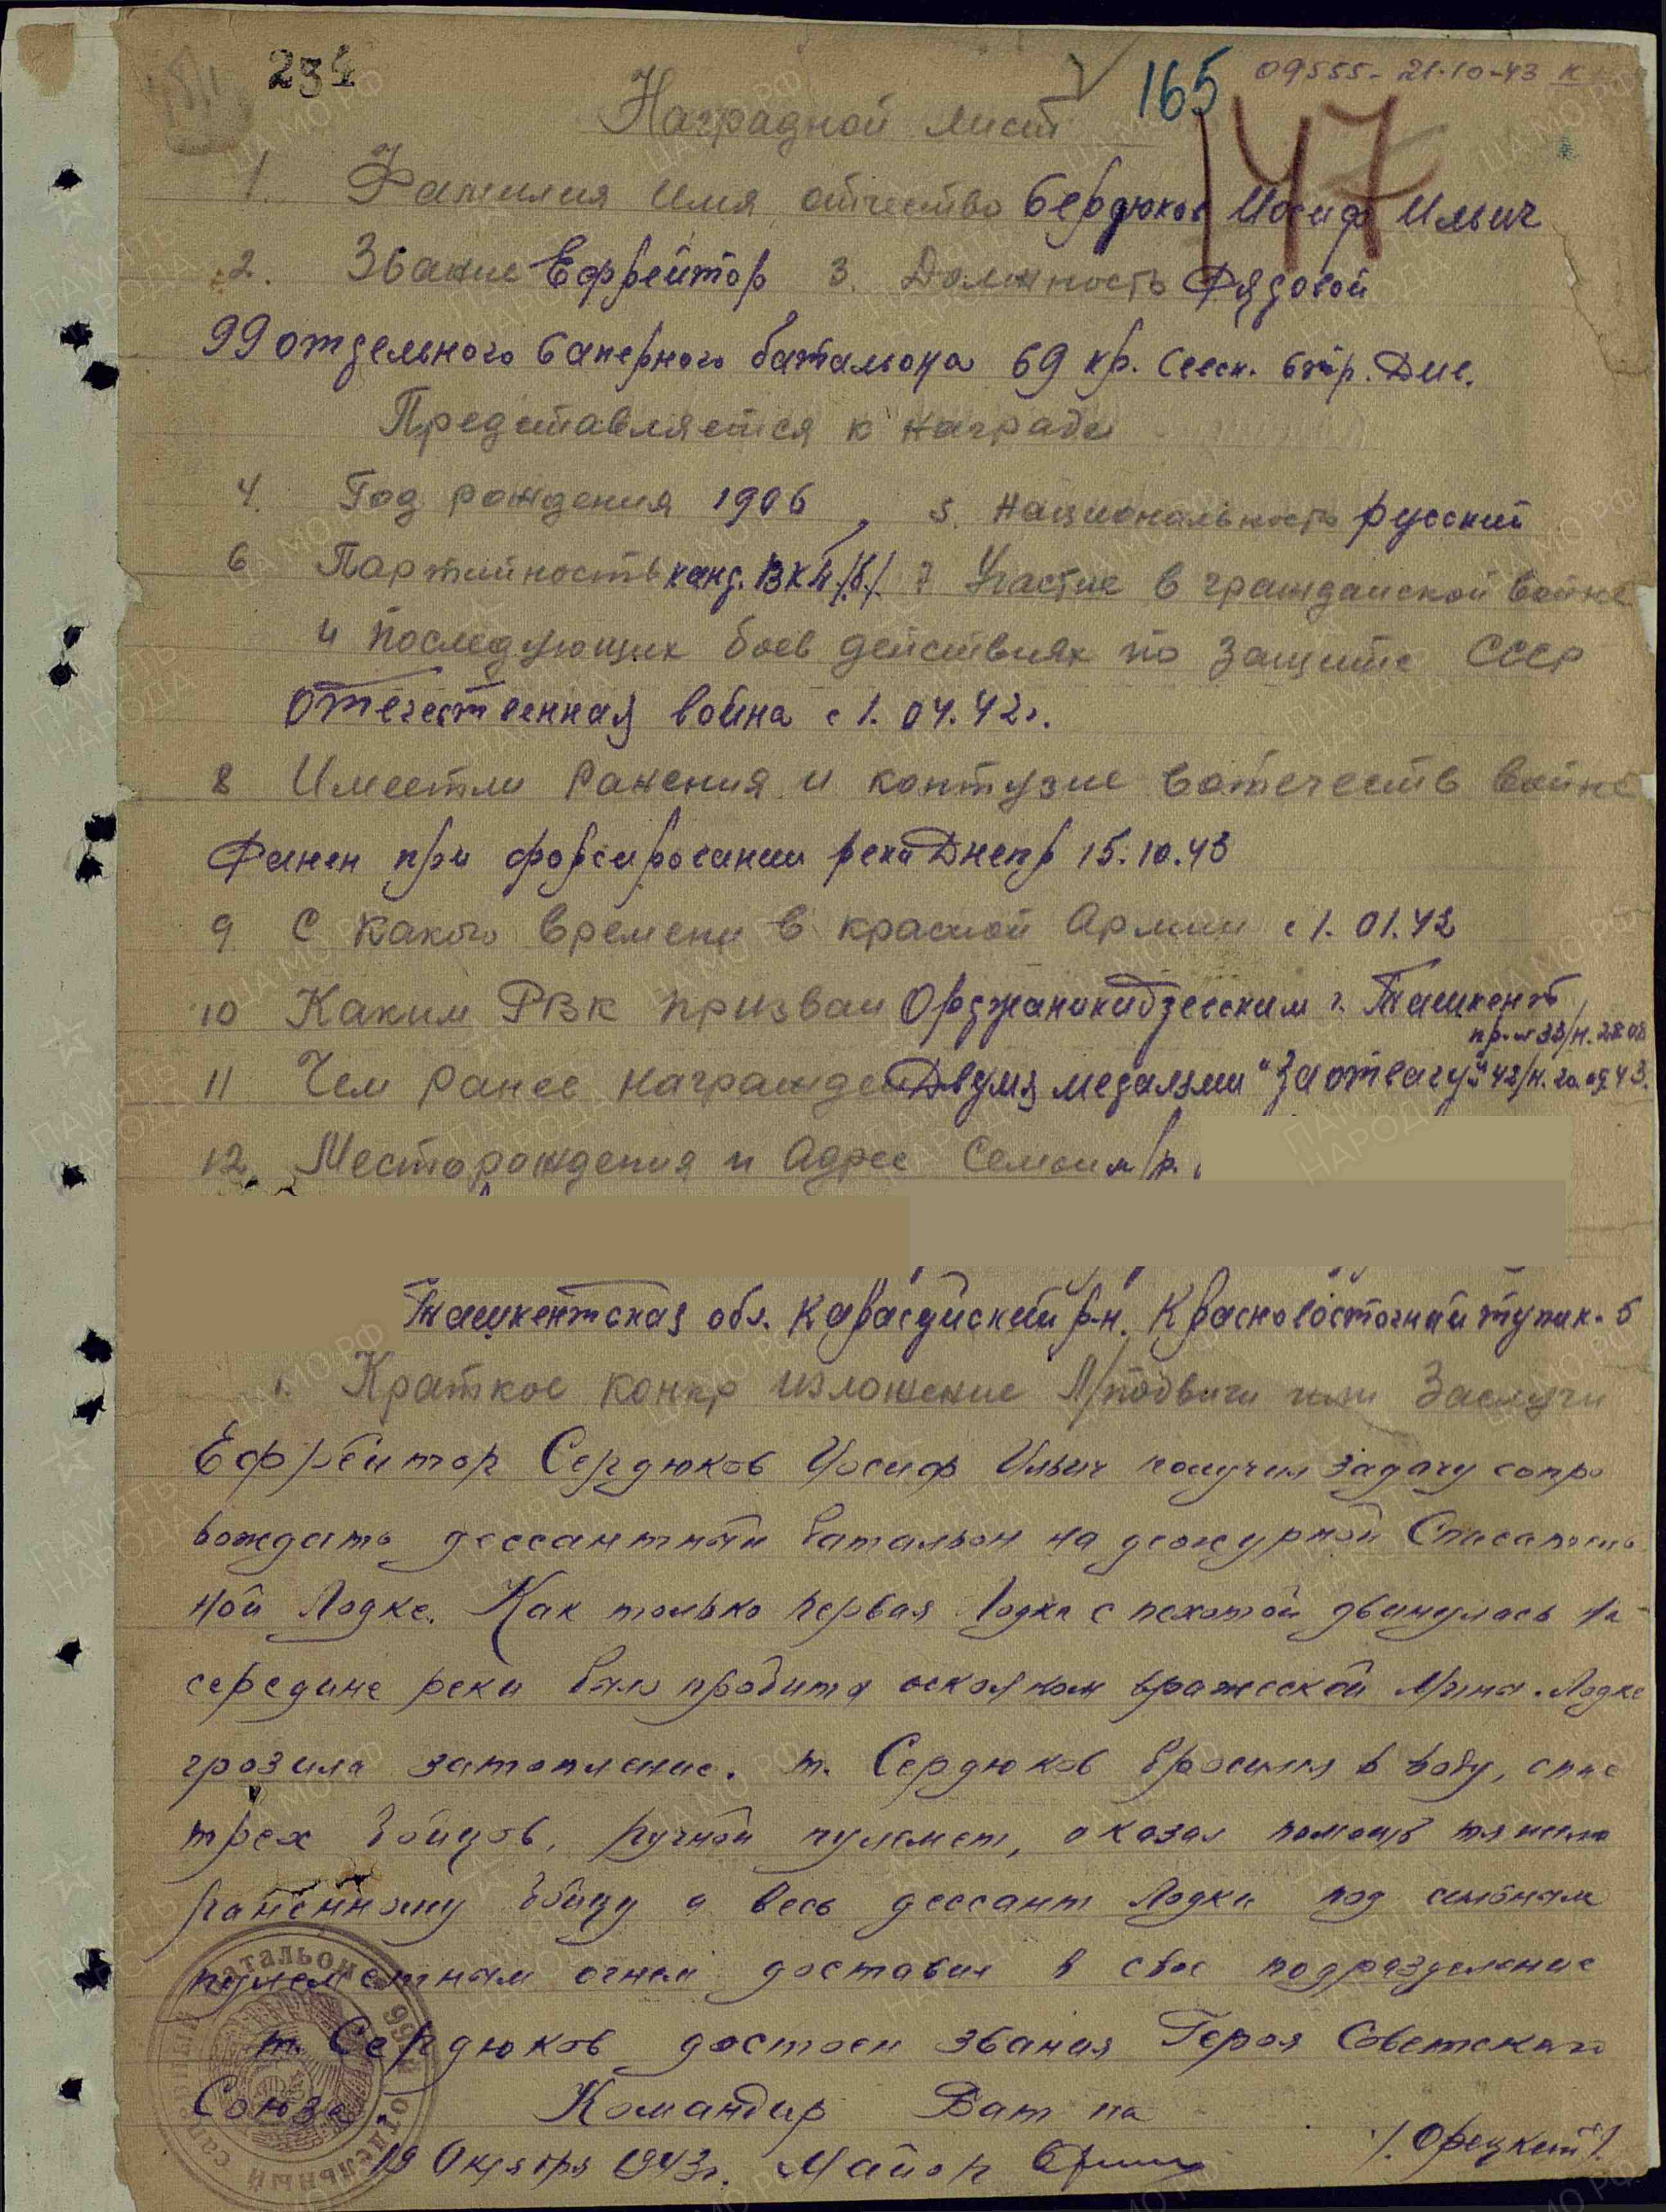 234
165 09555-21-10-43
147
Наградной лист
1. Фамилия Имя отчество Сердюков Иосиф Ильич
2. Звание Ефрейтор 3. Должность Рядовой
99 отдельного саперного батальона 69 кр. Севск. стр. Див.
Представляется к награде
4. Год рождения 1906, 5. Национальность русский
6 Партийность канд. ВКП/б/. 7 Участие в гражданской войне
и последующих боев действиях по защите СССР
Отечественная война с 1.04.42г.
8 Имеетли ранения и контузие вотечеств войне
Ранен при форсировании реки Днепр 15.10.43
9 С какого времени в красной Армии с 1.01.42
10 Каким РВК призван Орджаникидзевским г. Ташкент
пр. № 33/н. 28 08
11 Чем ранее награжден Двумя медалями "За отвагу" 42/н. 20.09.43.
12. Месторождения и Адрес Семьи м/р.
Ташкентская обл. Карасуйский р-н. Красновосточный тупик. 5
1. Краткое конкр изложение Л/подвиги или Заслуги
Ефрейтор Сердюков Иосиф Ильич получил задачу сопро
вождать дессантный батальон на дежурной Спасатель
ной Лодке. Как только первая Лодка с пехотой двинулась На
середине реки был пробита осколком вражеской Мины. Лодке
грозило затопление. т. Сердюков бросился в воду, спас
трех бойцов, ручной пулемет, оказал помощь тяжело
раненному бойцу и весь дессант Лодки под сильным
пулеметным огнем доставил в свое подразделение
т. Сердюков достоен звания Героя Советского
Союза. Командир Бат на
19 Октября 1943г. Майор /. Орецкет /.
99й отдельный саперный батальон
ПАМЯТЬ НАРОДА
ЦА МО РФ